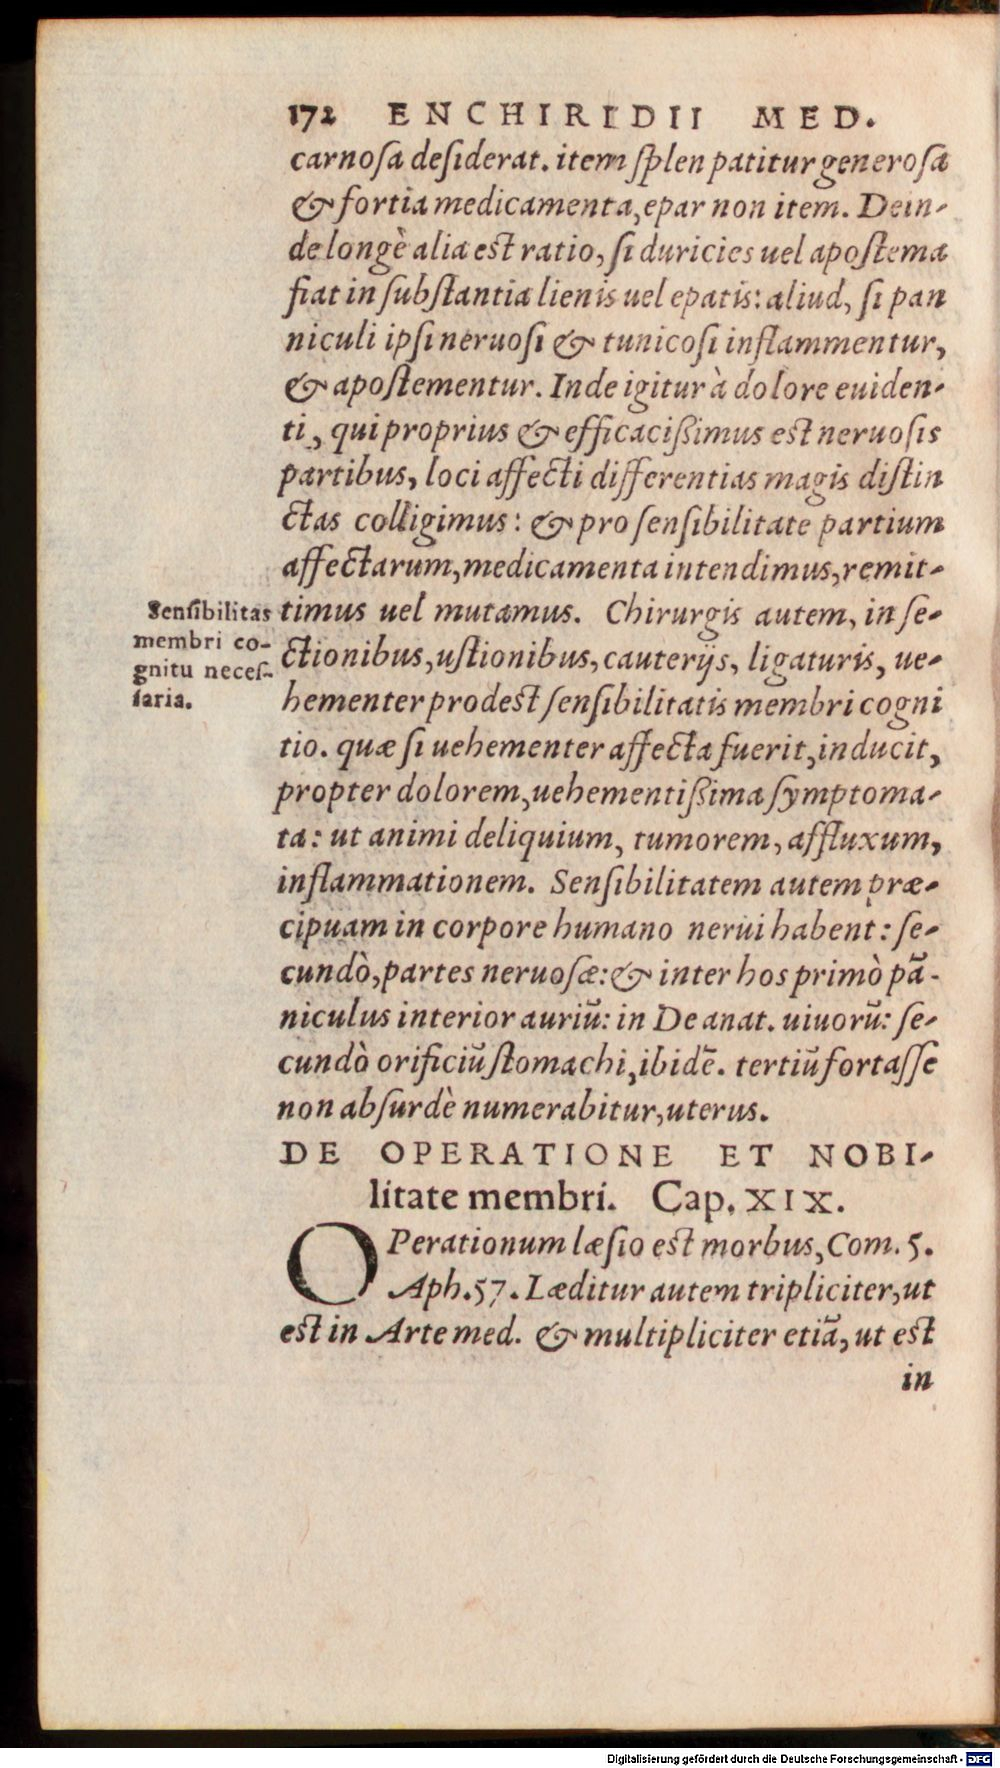 172 ENCHIRIDII MED.
carnosa desiderat. item splen patitur generosa
& fortia medicamenta, epar non item. Dein-
de longè alia est ratio, si duricies uel apostema
fiat in substantia lienis uel epatis: aliud, si pan
niculi ipsi neruosi & tunicosi inflammentur,
& apostementur. Inde igitur à dolore euiden-
ti, qui proprius & efficacißimus est neruosis
partibus, loci affecti differentias magis distin
ctas colligimus: & pro sensibilitate partium
affectarum, medicamenta intendimus, remit-
timus uel mutamus. Chirurgis autem, in se-
ctionibus, ustionibus, cauterijs, ligaturis, ue-
hementer prodest sensibilitatis membri cogni
tio. quæ si uehementer affecta fuerit, inducit,
propter dolorem, uehementißima symptoma-
ta: ut animi deliquium, tumorem, affluxum,
inflammationem. Sensibilitatem autem præ-
cipuam in corpore humano nerui habent: se-
cundò, partes neruosæ: & inter hos primò pā-
niculus interior auriū: in De anat. uiuorū: se-
cundò orificiū stomachi, ibidē. tertiū fortasse
non absurdè numerabitur, uterus.
Sensibilitas
membri co-
gnitu neces-
saria.
DE OPERATIONE ET NOBI-
litate membri. Cap. XIX.
OPerationum læsio est morbus, Com. 5.
Aph. 57. Læditur autem tripliciter, ut
est in Arte med. & multipliciter etiā, ut est
in
Digitalisierung gefördert durch die Deutsche Forschungsgemeinschaft - DFG